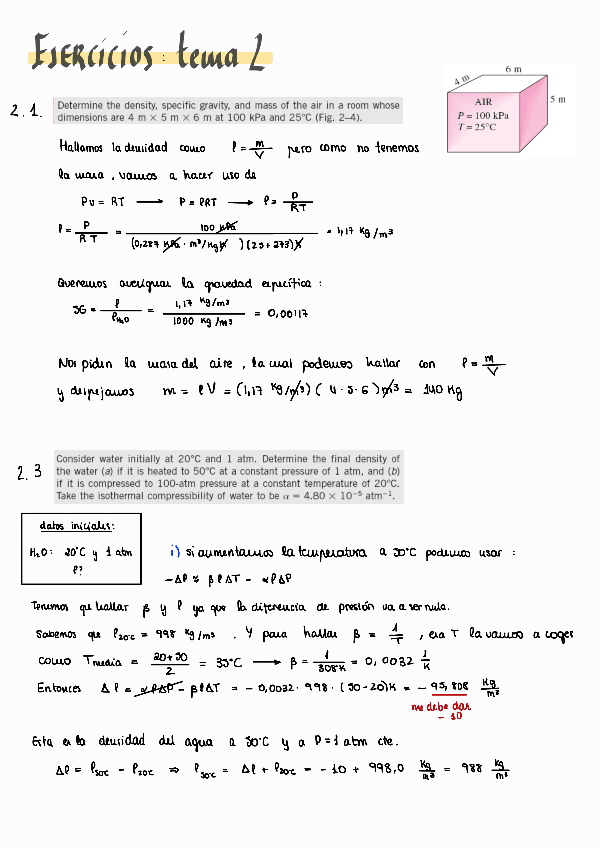 EJERCICIOS: tema 2
4 m
6 m
5 m
AIR
P = 100 kPa
T = 25°C
2.1.
Determine the density, specific gravity, and mass of the air in a room whose
dimensions are 4 m × 5 m × 6 m at 100 kPa and 25°C (Fig. 2–4).
Hallamos la densidad como ρ = m/V pero como no tenemos
la masa, vamos a hacer uso de
Pv = RT → P = ρRT → ρ = P/RT
ρ = P/RT = 100 kPa / (0,287 kPa · m³/kg K)(25+273)K = 1,17 kg/m³
Queremos averiguar la gravedad específica:
SG = ρ/ρH₂O = 1,17 kg/m³ / 1000 kg/m³ = 0,00117
Nos piden la masa del aire, la cual podemos hallar con ρ = m/V
y despejamos m = ρV = (1,17 kg/m³)(4·5·6)m³ = 140 kg
2.3
Consider water initially at 20°C and 1 atm. Determine the final density of
the water (a) if it is heated to 50°C at a constant pressure of 1 atm, and (b)
if it is compressed to 100-atm pressure at a constant temperature of 20°C.
Take the isothermal compressibility of water to be α = 4.80 × 10⁻⁵ atm⁻¹.
datos iniciales:
H₂O: 20°C y 1 atm
ρ?
i) si aumentamos la temperatura a 50°C podemos usar:
-Δρ ≈ βρΔT - αρΔP
Tenemos que hallar β y ρ ya que la diferencia de presión va a ser nula.
Sabemos que ρ20°C = 998 kg/m³. Y para hallar β = 1/T, esa T la vamos a coger
como Tmedia = 20+50/2 = 35°C → β = 1/308K = 0,0032 1/K
Entonces Δρ = αρΔP - βρΔT = -0,0032·998·(50-20)K = -95,808 kg/m³
me debe dar
-10
Esta es la densidad del agua a 50°C y a P=1 atm cte.
Δρ = ρ50°C - ρ20°C ⇒ ρ50°C = Δρ + ρ20°C = -10 + 998,0 kg/m³ = 988 kg/m³